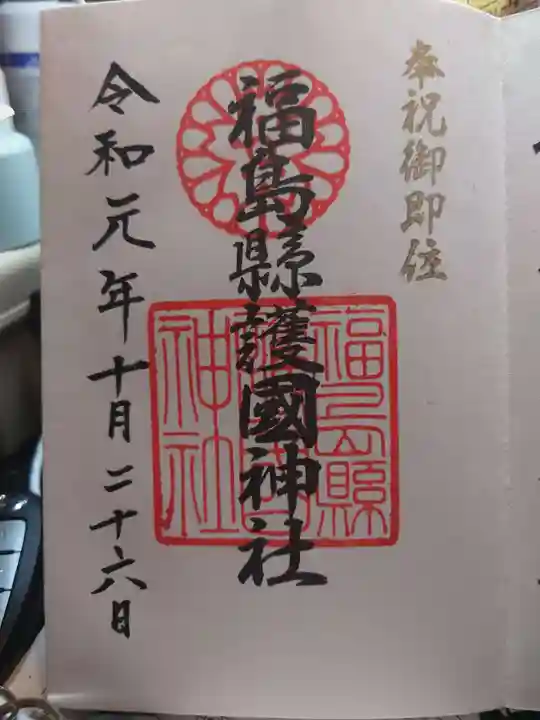 奉祝御即位
福島縣護國神社
福島縣
護國
神社
令和元年十月二十六日